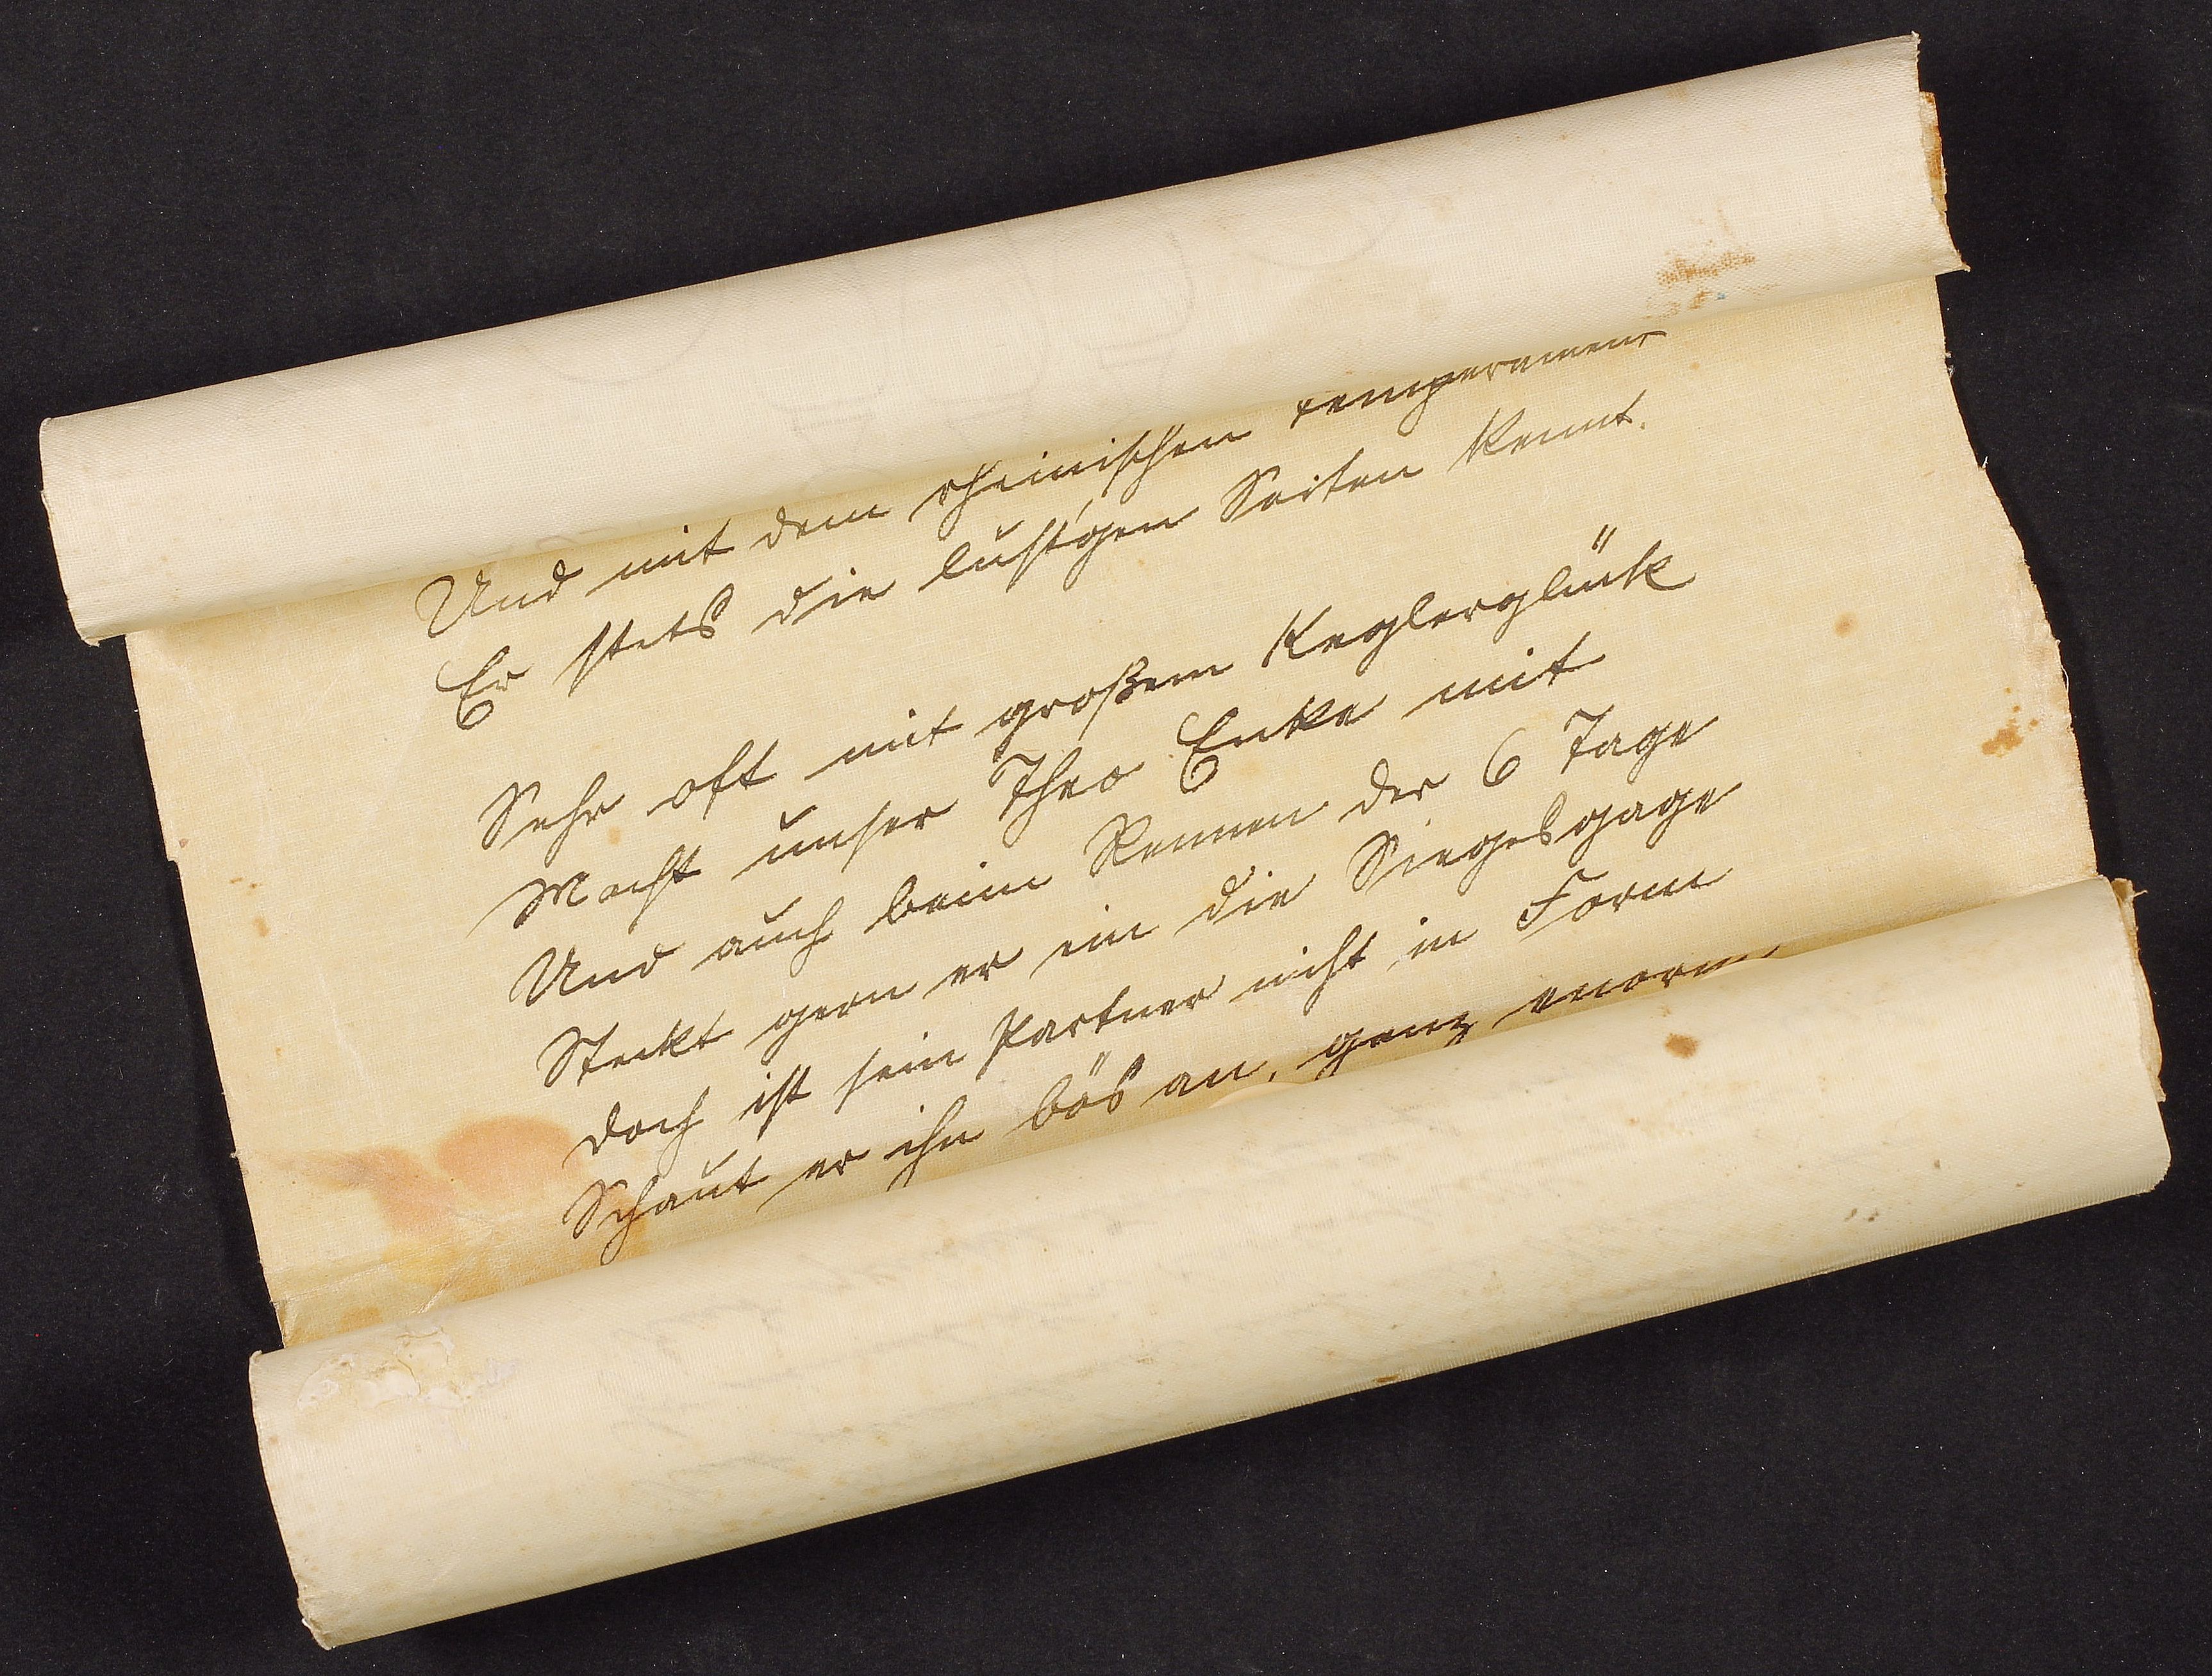 Und mit dem rheinischen Temperament
Er stets die lust'gen Seiten kennt.
Sehr oft mit großem Keglerglück
Macht unser Theo Enke mit
Und auch beim Rennen der 6 Tage
Steckt gern er ein die Siegesgage
Doch ist sein Partner nicht in Form
Schaut er ihn bös an, ganz enorm.